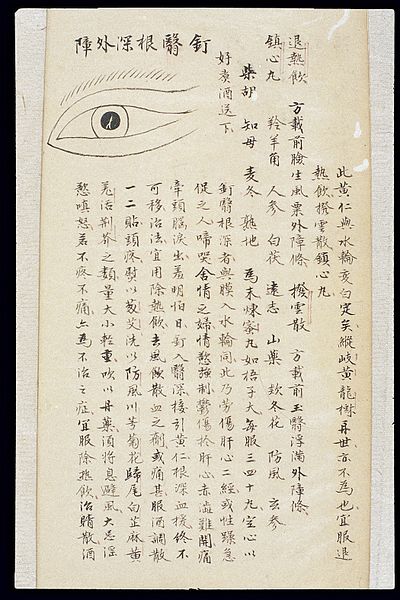 此黃仁與水輪亥白定矣縱岐黃龍樹再世亦不為也宜服退
熱飲撥雲散鎮心丸
退熱飲 方載前臉生風粟外障條 撥雲散 方載前玉翳浮滿外障條
鎮心丸 羚羊角 人參 白茯 遠志 山藥 欵冬花 防風 玄參
柴胡 知母 麦冬 熟地 為末煉蜜丸如梧子大每服三四十丸空心以
好煮酒送下
釘翳根深外障
釘翳根深者與膜入水輪同此乃勞傷肝心二經或性躁急
促之人啼哭含情之婦情慾強制鬱傷於肝心赤澁難開痛
牽頭腦淚出羞明怕日釘入翳深接引黃仁根深血接終不
可移治法宜用除熱飲去風飲散血之劑或痛甚服酒調散
一二貼頭疼熨以葱艾洗以防風川芎菊花歸尾白芷麻黃
羌活荆芥之類量大小輕重吹以丹藥須將息避風大忌淫
慾嗔怒若不疼不痛亦為不治之症宜服除熱飲治睛散酒